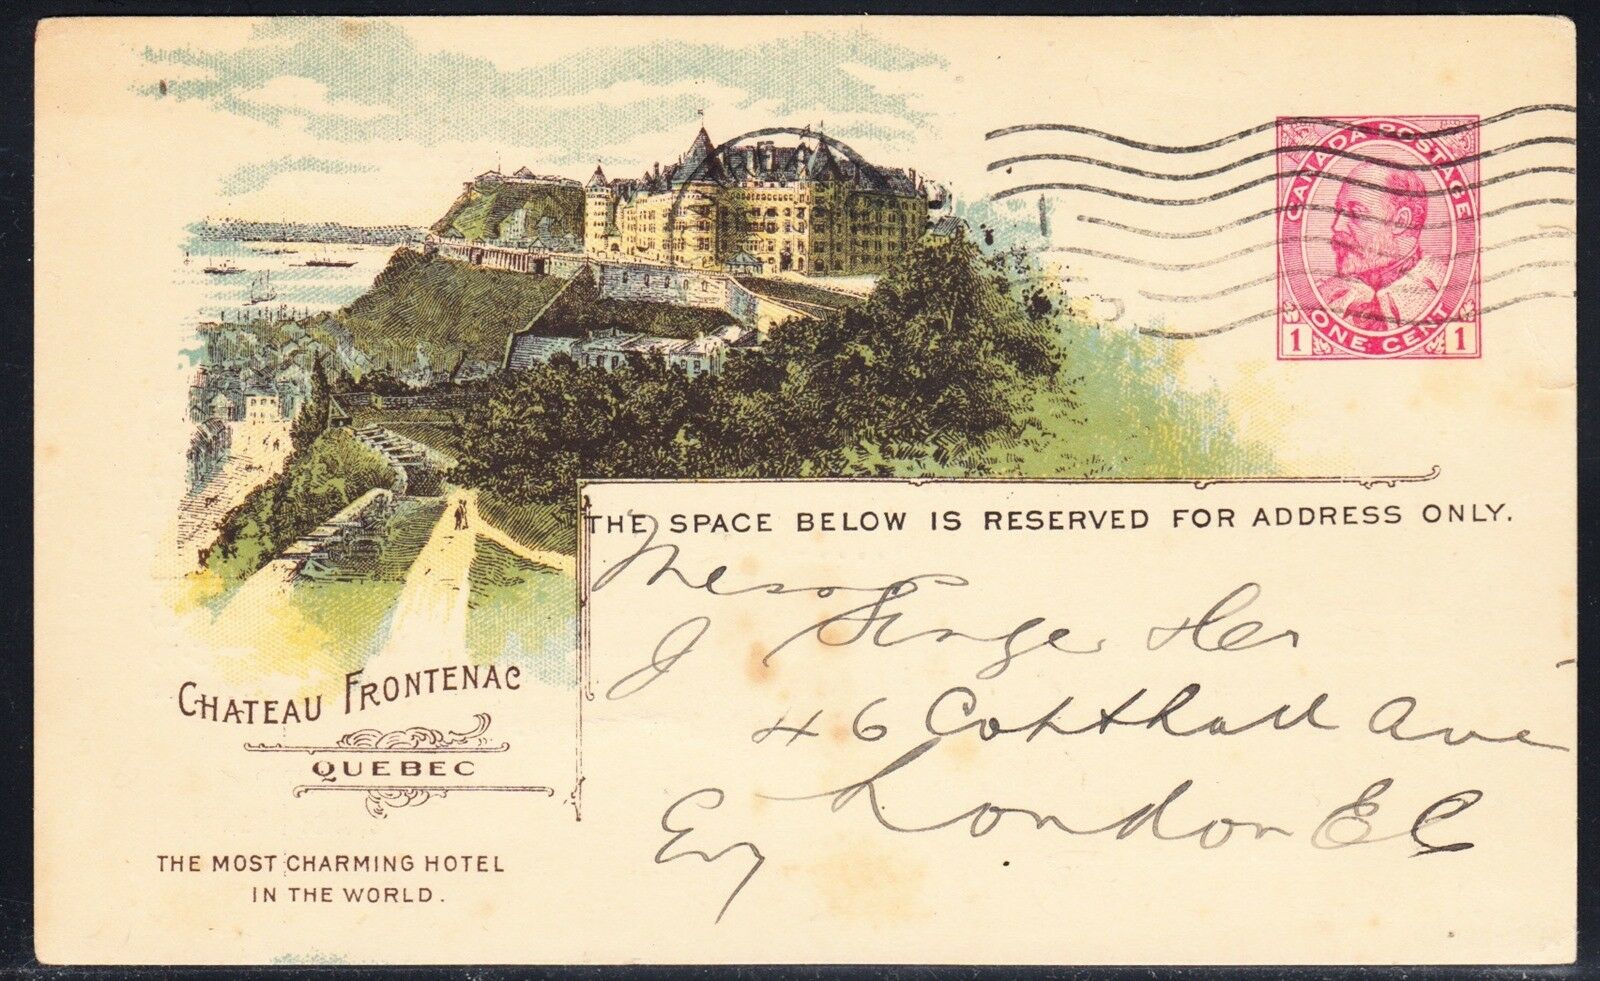 CANADA POSTAGE
ONE CENT
1 1
THE SPACE BELOW IS RESERVED FOR ADDRESS ONLY.
Messrs
J
46 Copthall Ave
London E C
CHATEAU FRONTENAC
QUEBEC
THE MOST CHARMING HOTEL
IN THE WORLD.